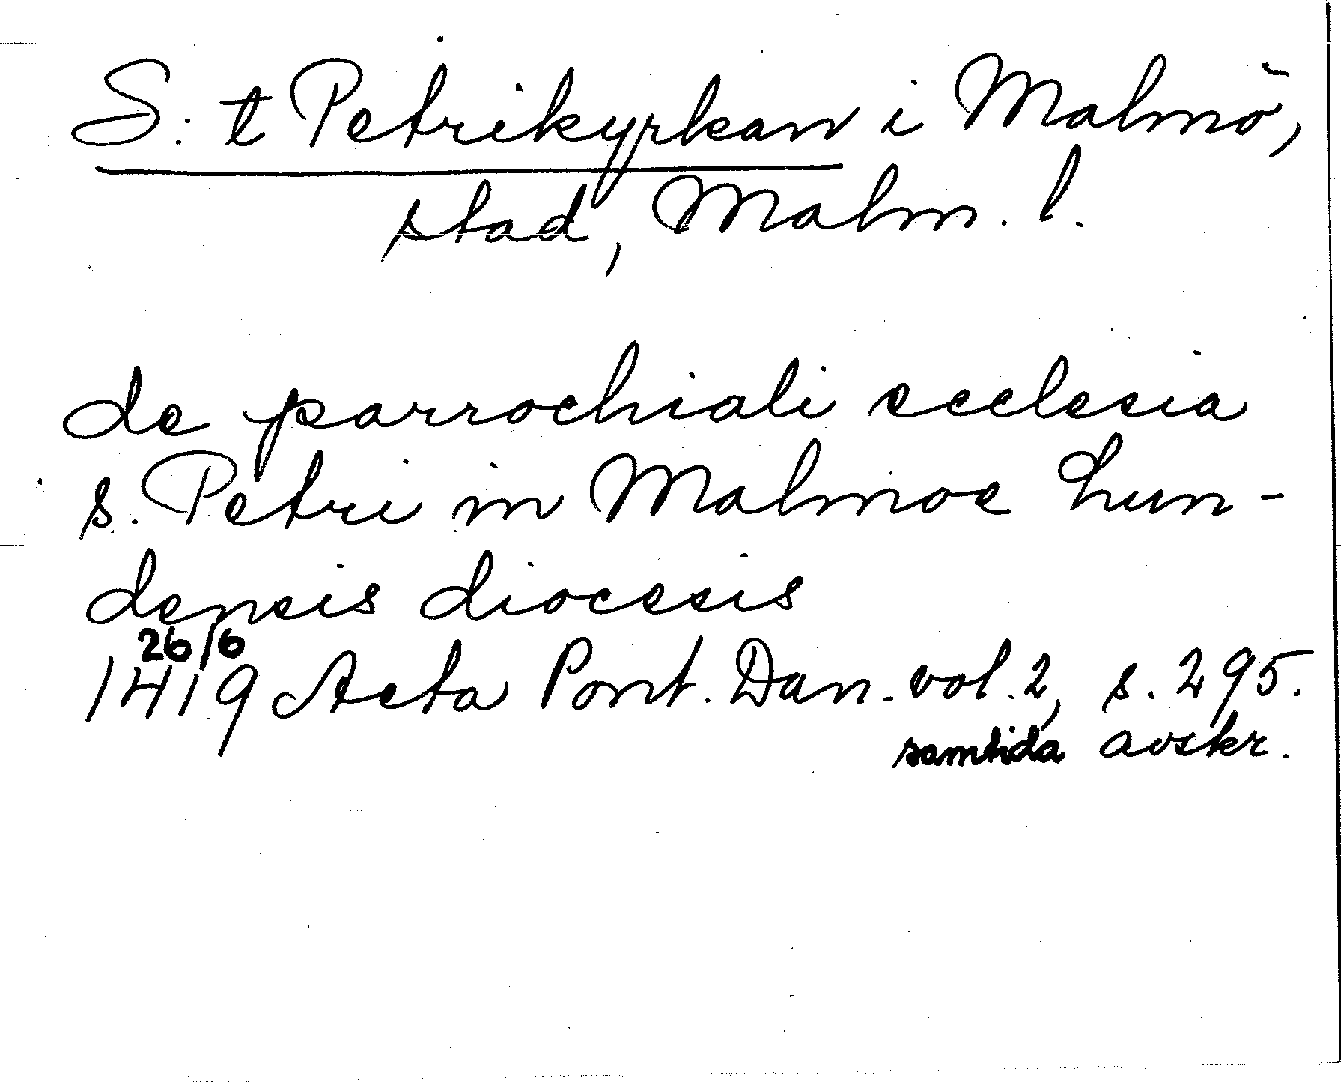 S:t Petrikyrkan i Malmö,
stad, Malm. l.
de parrochiali ecclesia
s. Petri in Malmoe Lun-
densis diocesis
26/6
1419 Acta Pont. Dan. vol. 2, s. 295.
samtida avskr.